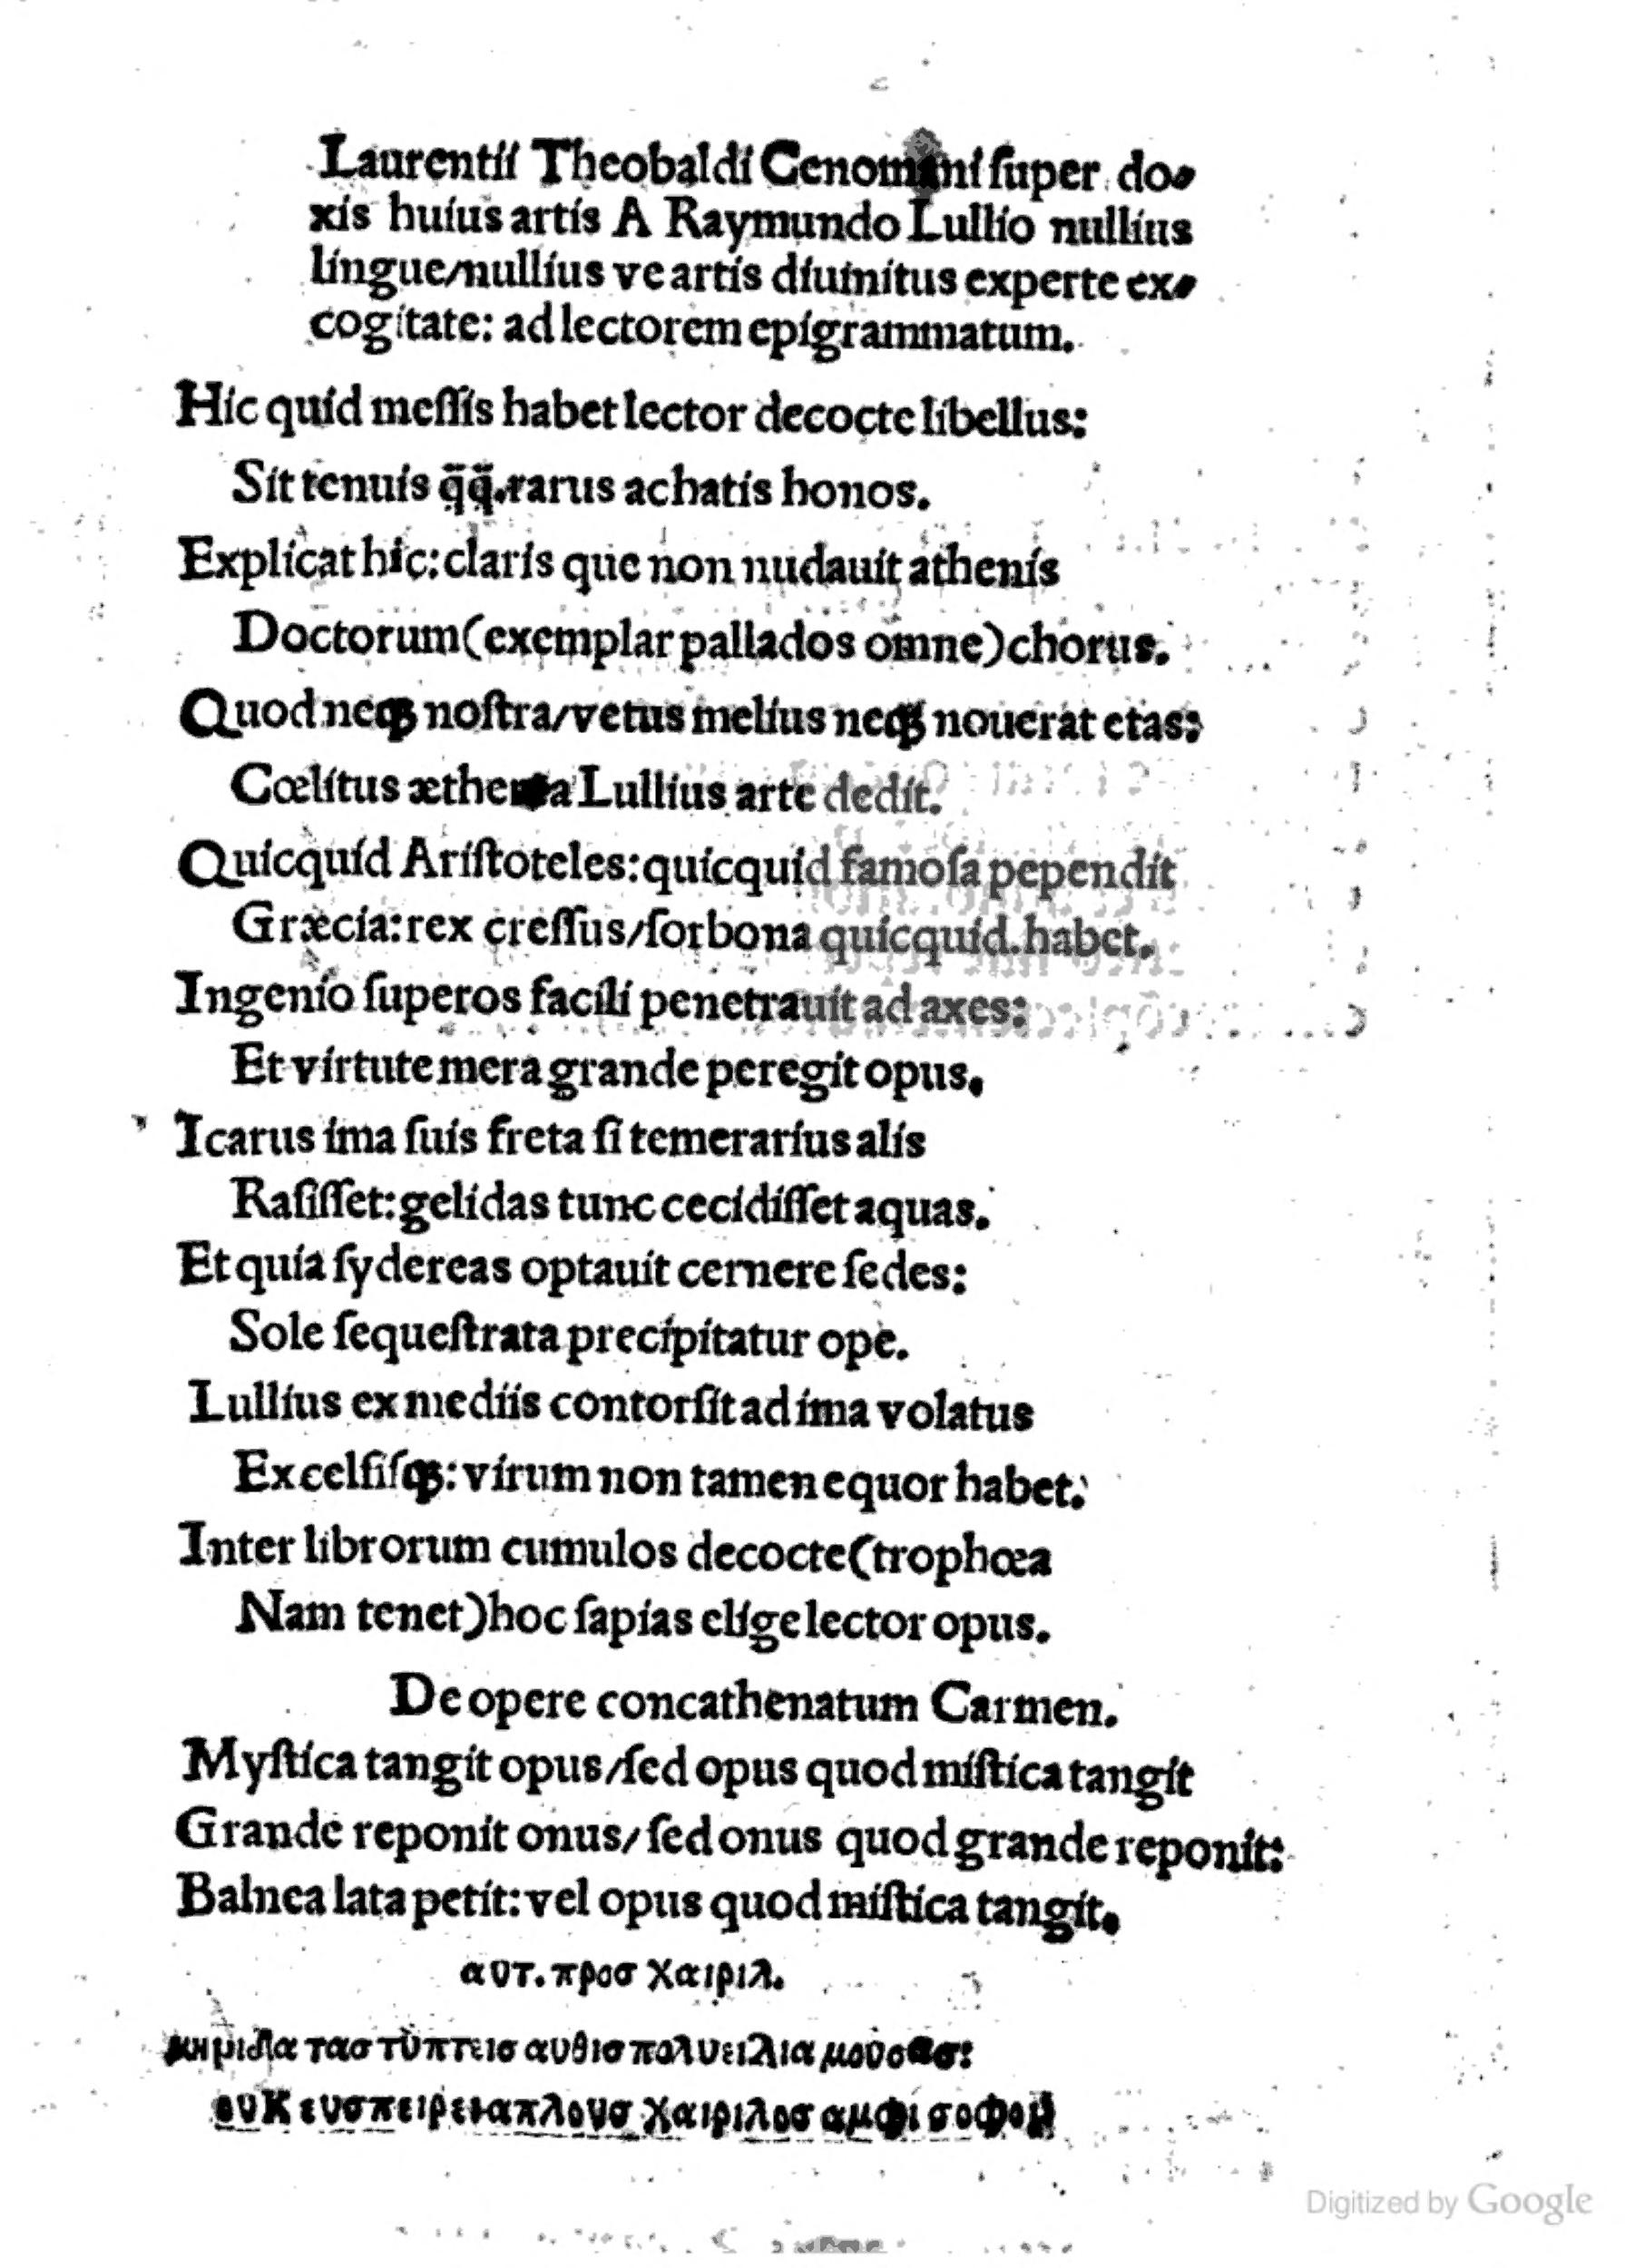 Laurentii Theobaldi Cenomani ſuper do⸗
xis huius artis A Raymundo Lullio nullius
lingue/nullius ve artis diuinitus experte ex⸗
cogitate: ad lectorem epigrammatum.
Hic quid meſſis habet lector decocte libellus:
Sit tenuis q̈q̈. rarus achatis honos.
Explicat hic: claris que non nudauit athenis
Doctorum (exemplar pallados omne) chorus.
Quod neqȝ noſtra/vetus melius neqȝ nouerat etas:
Cœlitus ætherea Lullius arte dedit.
Quicquid Ariſtoteles: quicquid famoſa pependit
Græcia: rex creſſus/ſorbona quicquid habet.
Ingenio ſuperos facili penetrauit ad axes:
Et virtute mera grande peregit opus.
Icarus ima ſuis freta ſi temerarius alis
Raſiſſet: gelidas tunc cecidiſſet aquas.
Et quia ſydereas optauit cernere ſedes:
Sole ſequeſtrata precipitatur ope.
Lullius ex mediis contorſit ad ima volatus
Excelſiſqȝ: virum non tamen equor habet.
Inter librorum cumulos decocte (trophœa
Nam tenet) hoc ſapias elige lector opus.
De opere concathenatum Carmen.
Myſtica tangit opus/ſed opus quod miſtica tangit
Grande reponit onus/ſed onus quod grande reponit:
Balnea lata petit: vel opus quod miſtica tangit.
αυτ. προσ χαιριλ.
τασ τὺπτεισ αυθισ πολυειλια μουσασ:
ουκ ευσπειρει απλουσ χαιριλοσ αμφι σοφον
Digitized by Google